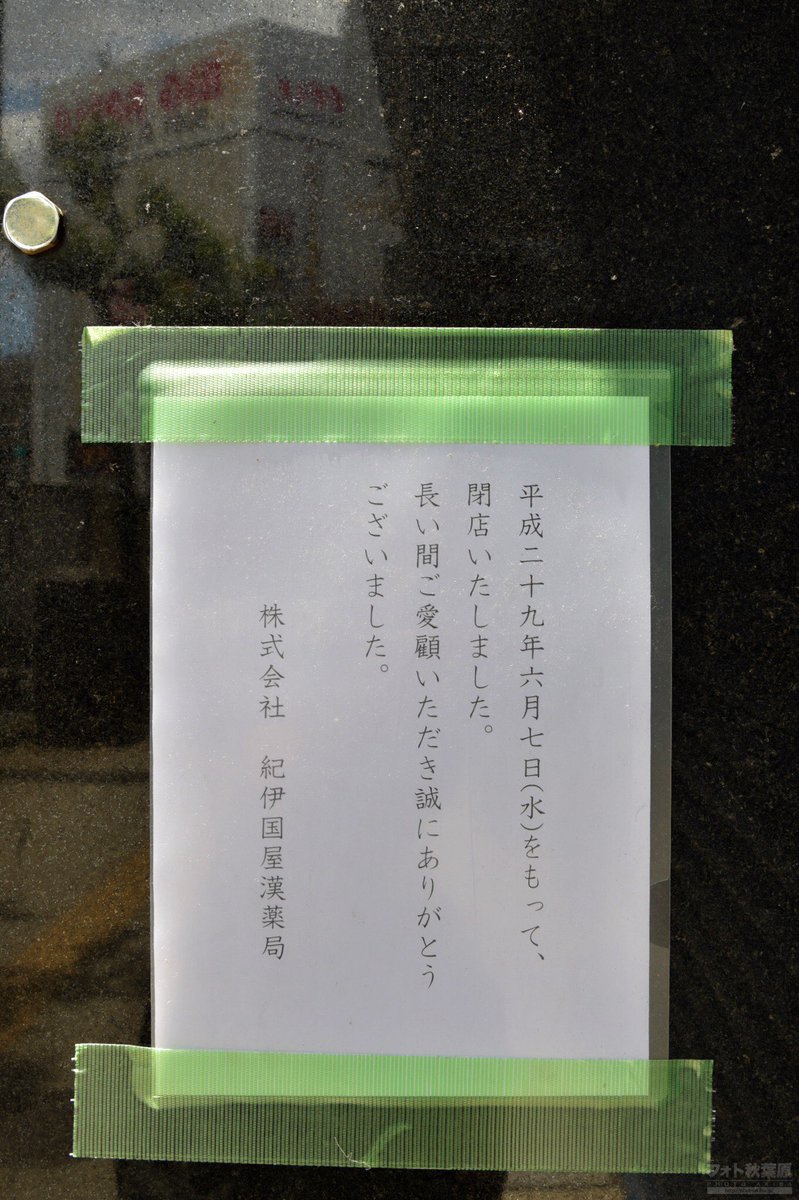 平成二十九年六月七日(水)をもって、
閉店いたしました。
長い間ご愛顧いただき誠にありがとう
ございました。
株式会社　紀伊国屋漢薬局
フォト秋葉原